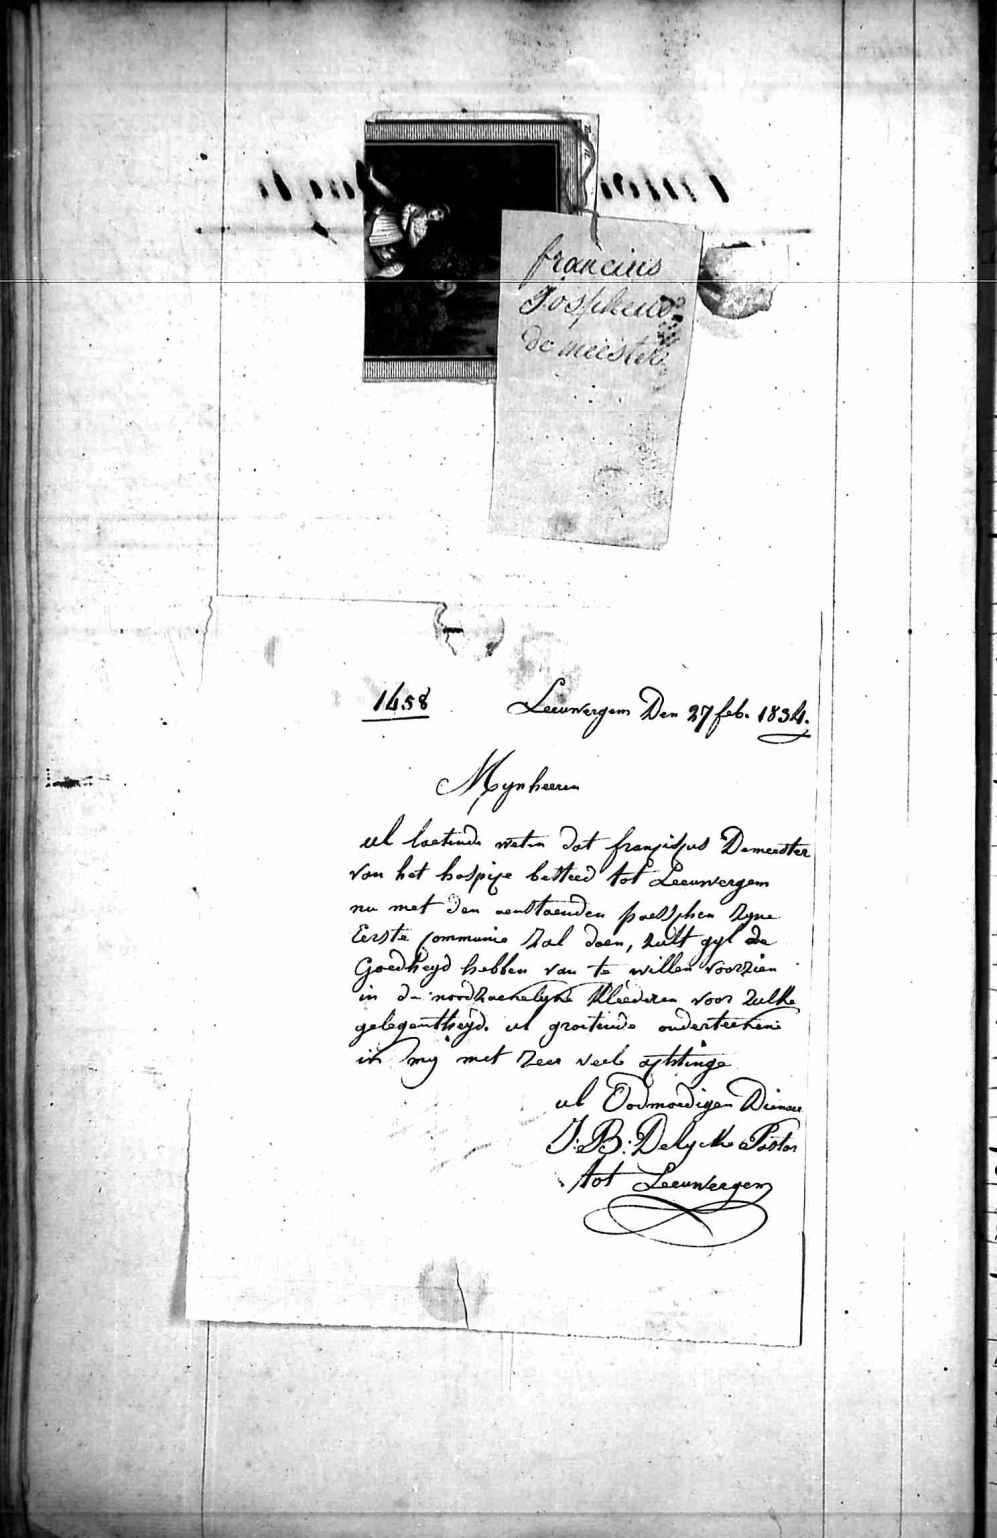 francius
Jospheus
de meester
1458
Leeuwergem Den 27 feb. 1834.
Mynheeren
ul laetende weten dat franciscus Demeester
van het hospice besteed tot Leeuwergem
nu met den aenstaenden paesschen zyne
Eerste communie zal doen, zult gyl de
Goedheyd hebben van te willen voorzien
in de noodzaekelyke kleederen voor zulke
gelegentheyd. ul groetende onderteekene
ik my met zeer veele achtinge
ul Oodmoedigen Dienaer
J: B: Delycke Pastor
tot Leeuwergem